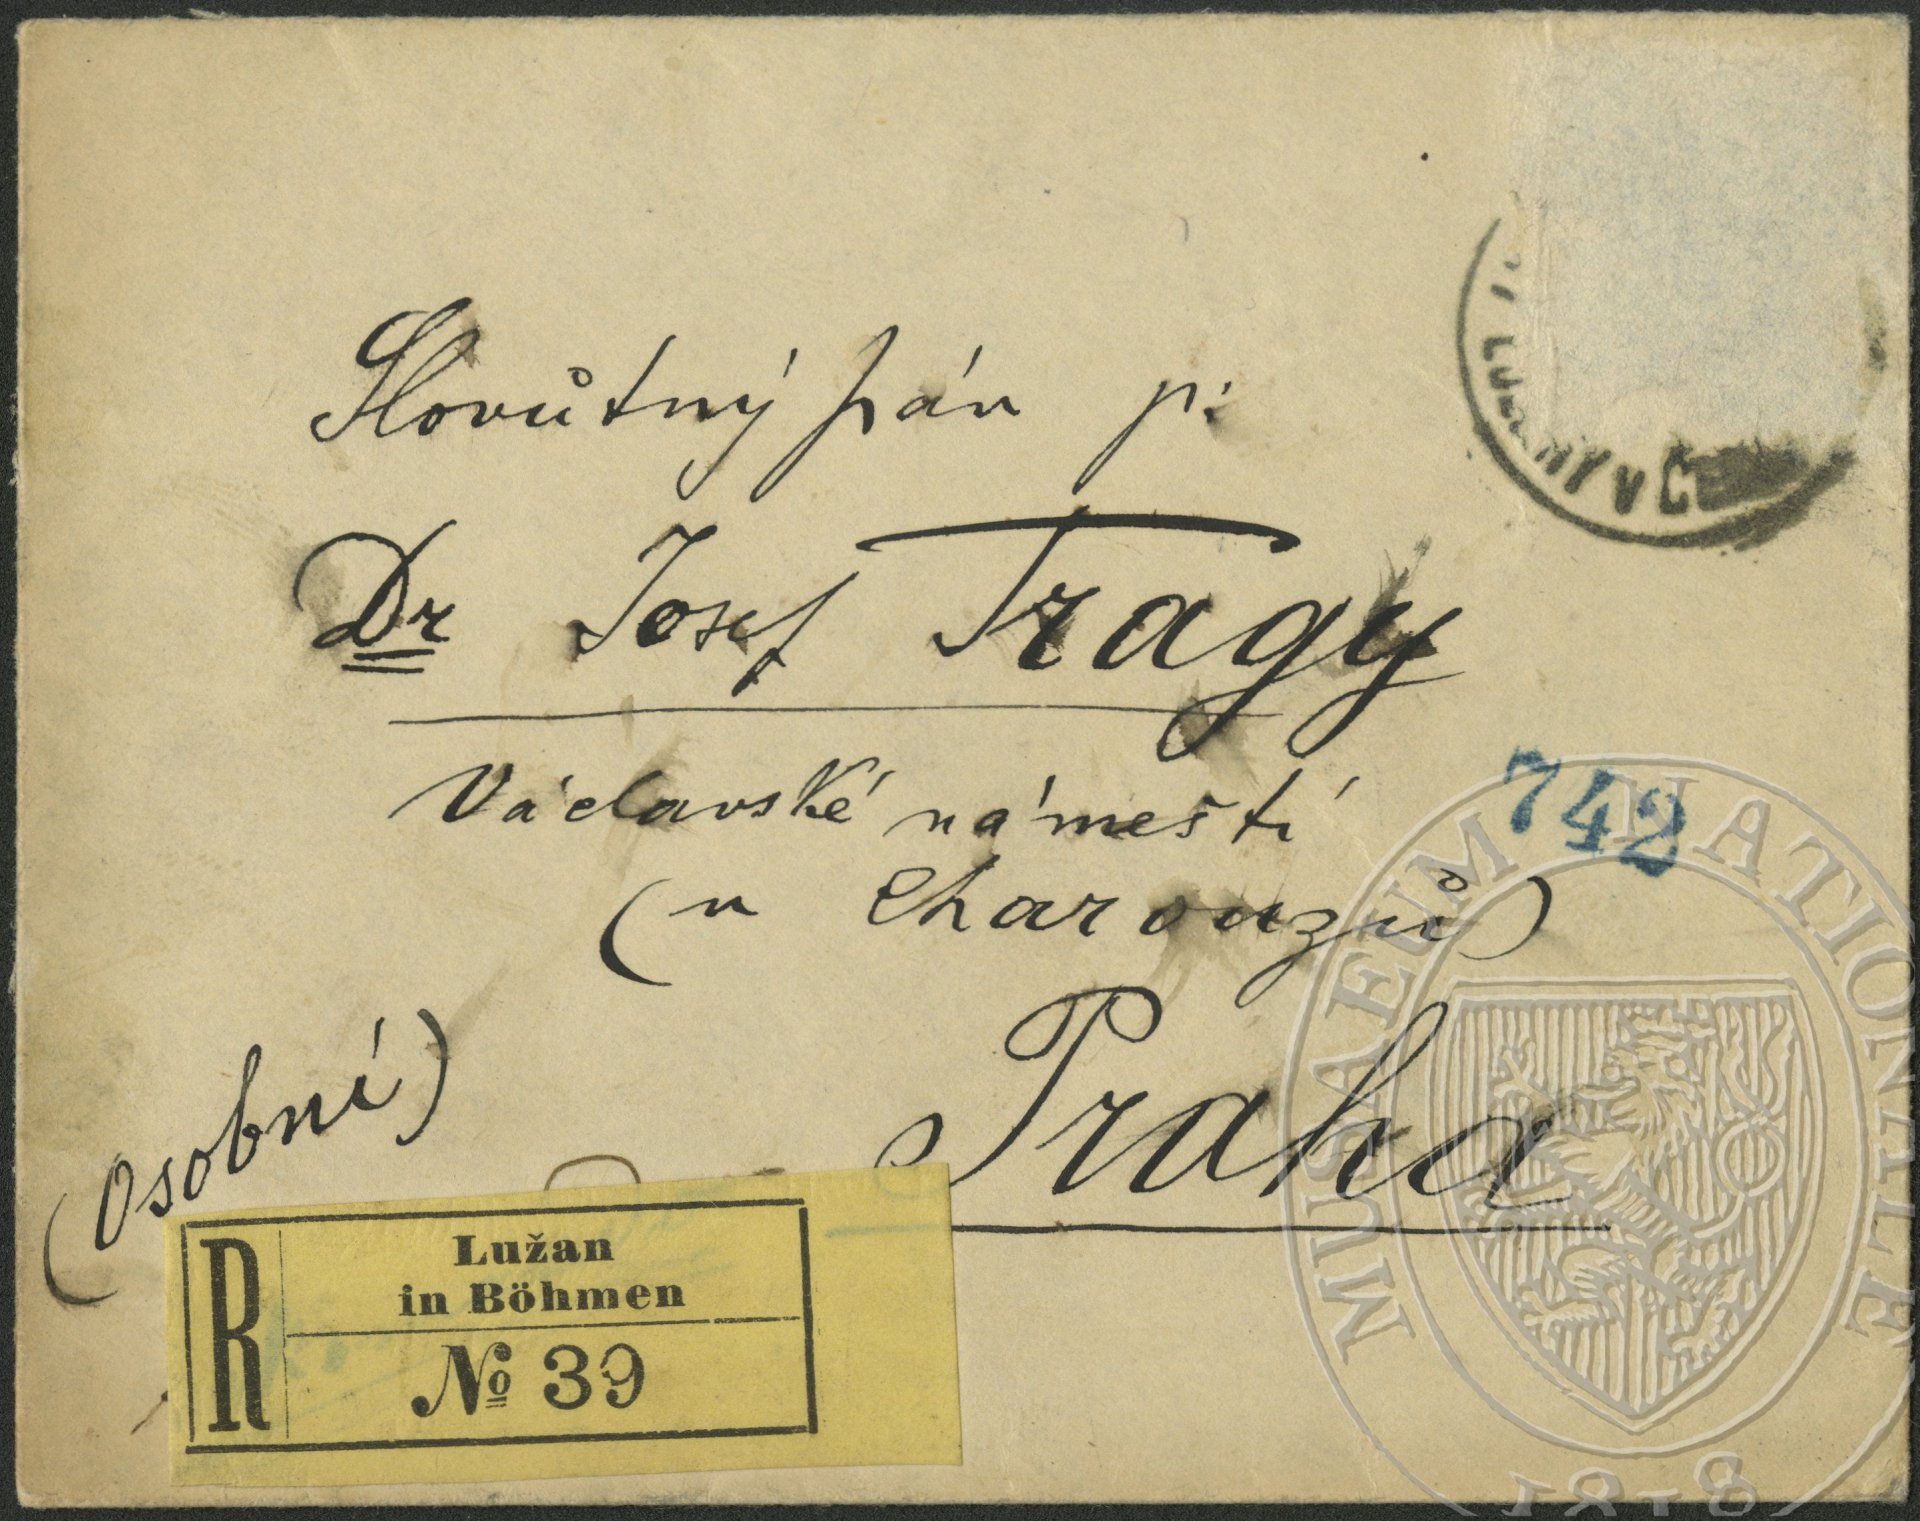 Slovůtný pán p:
Dr Josef Tragy
Václavské náměstí
(u Charouzů)
Praha
(Osobní)
742
R
Lužan
in Böhmen
№ 39
V Č
MUSAEUM NATIONALE
1818